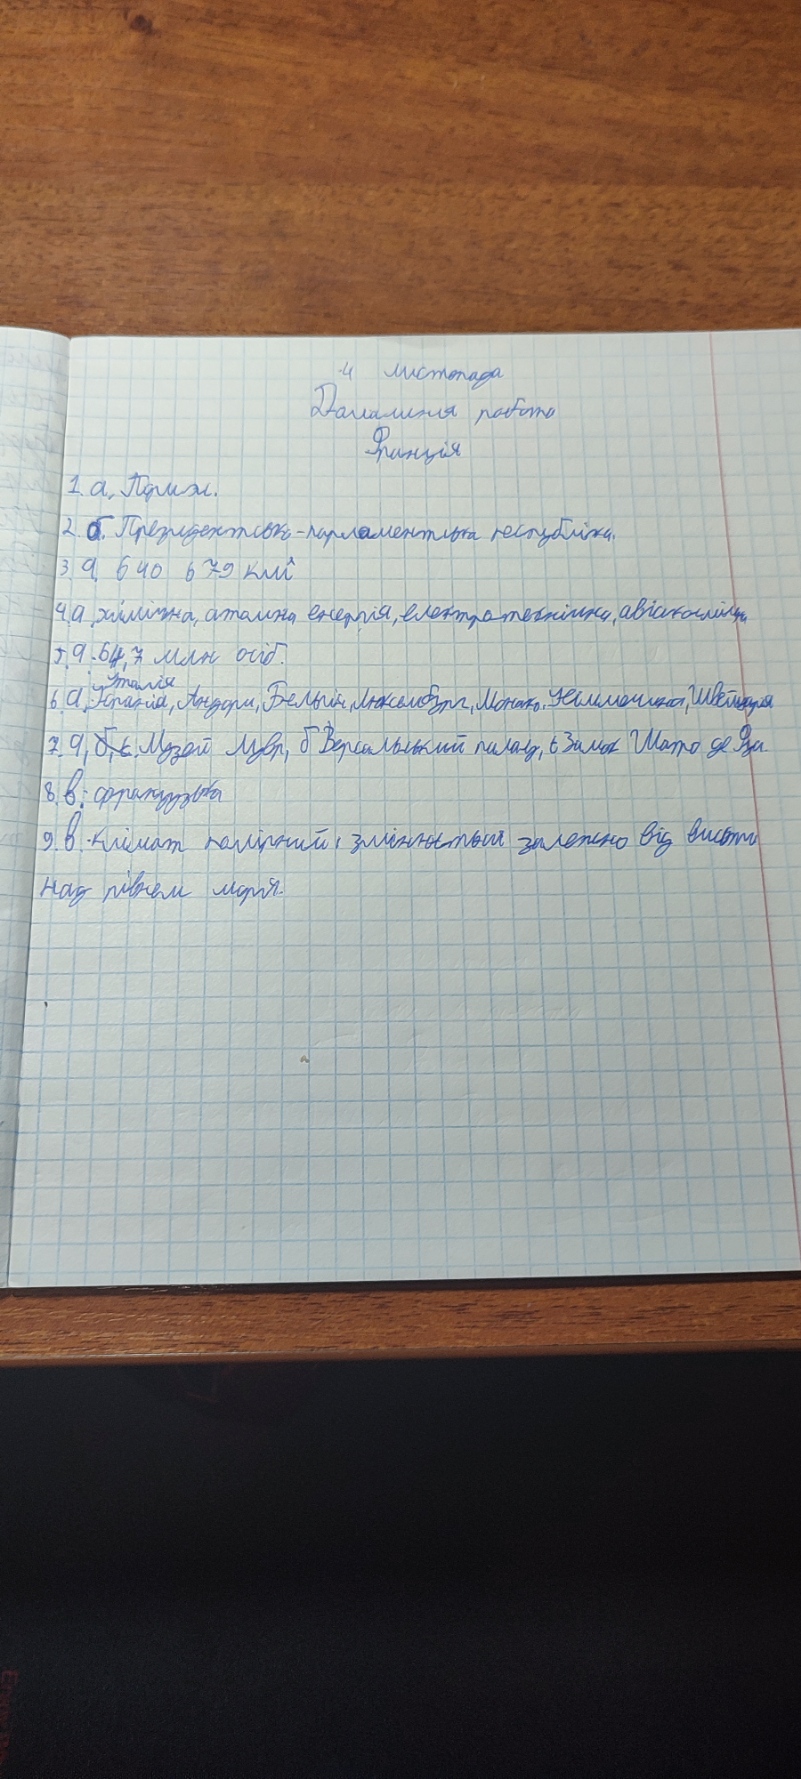 4 листопада
Домашня робота
Франція
1. а, Париж.
2. б. Президентсько-парламентська республіка.
3. а, 640 679 км²
4. а, хімічна, атомна енергія, електротехнічна, авіакосмічна
5. а. 64,7 млн осіб.
Італія
6. а, Іспанія, Андора, Бельгія, Люксембург, Монако, Німеччина, Швейцарія
7. а, б, є. Музей Лувр, б Версальський палац, є Замок Шато де
8. в. французька
9. в. Клімат помірний, змінюється залежно від висоти
над рівнем моря.